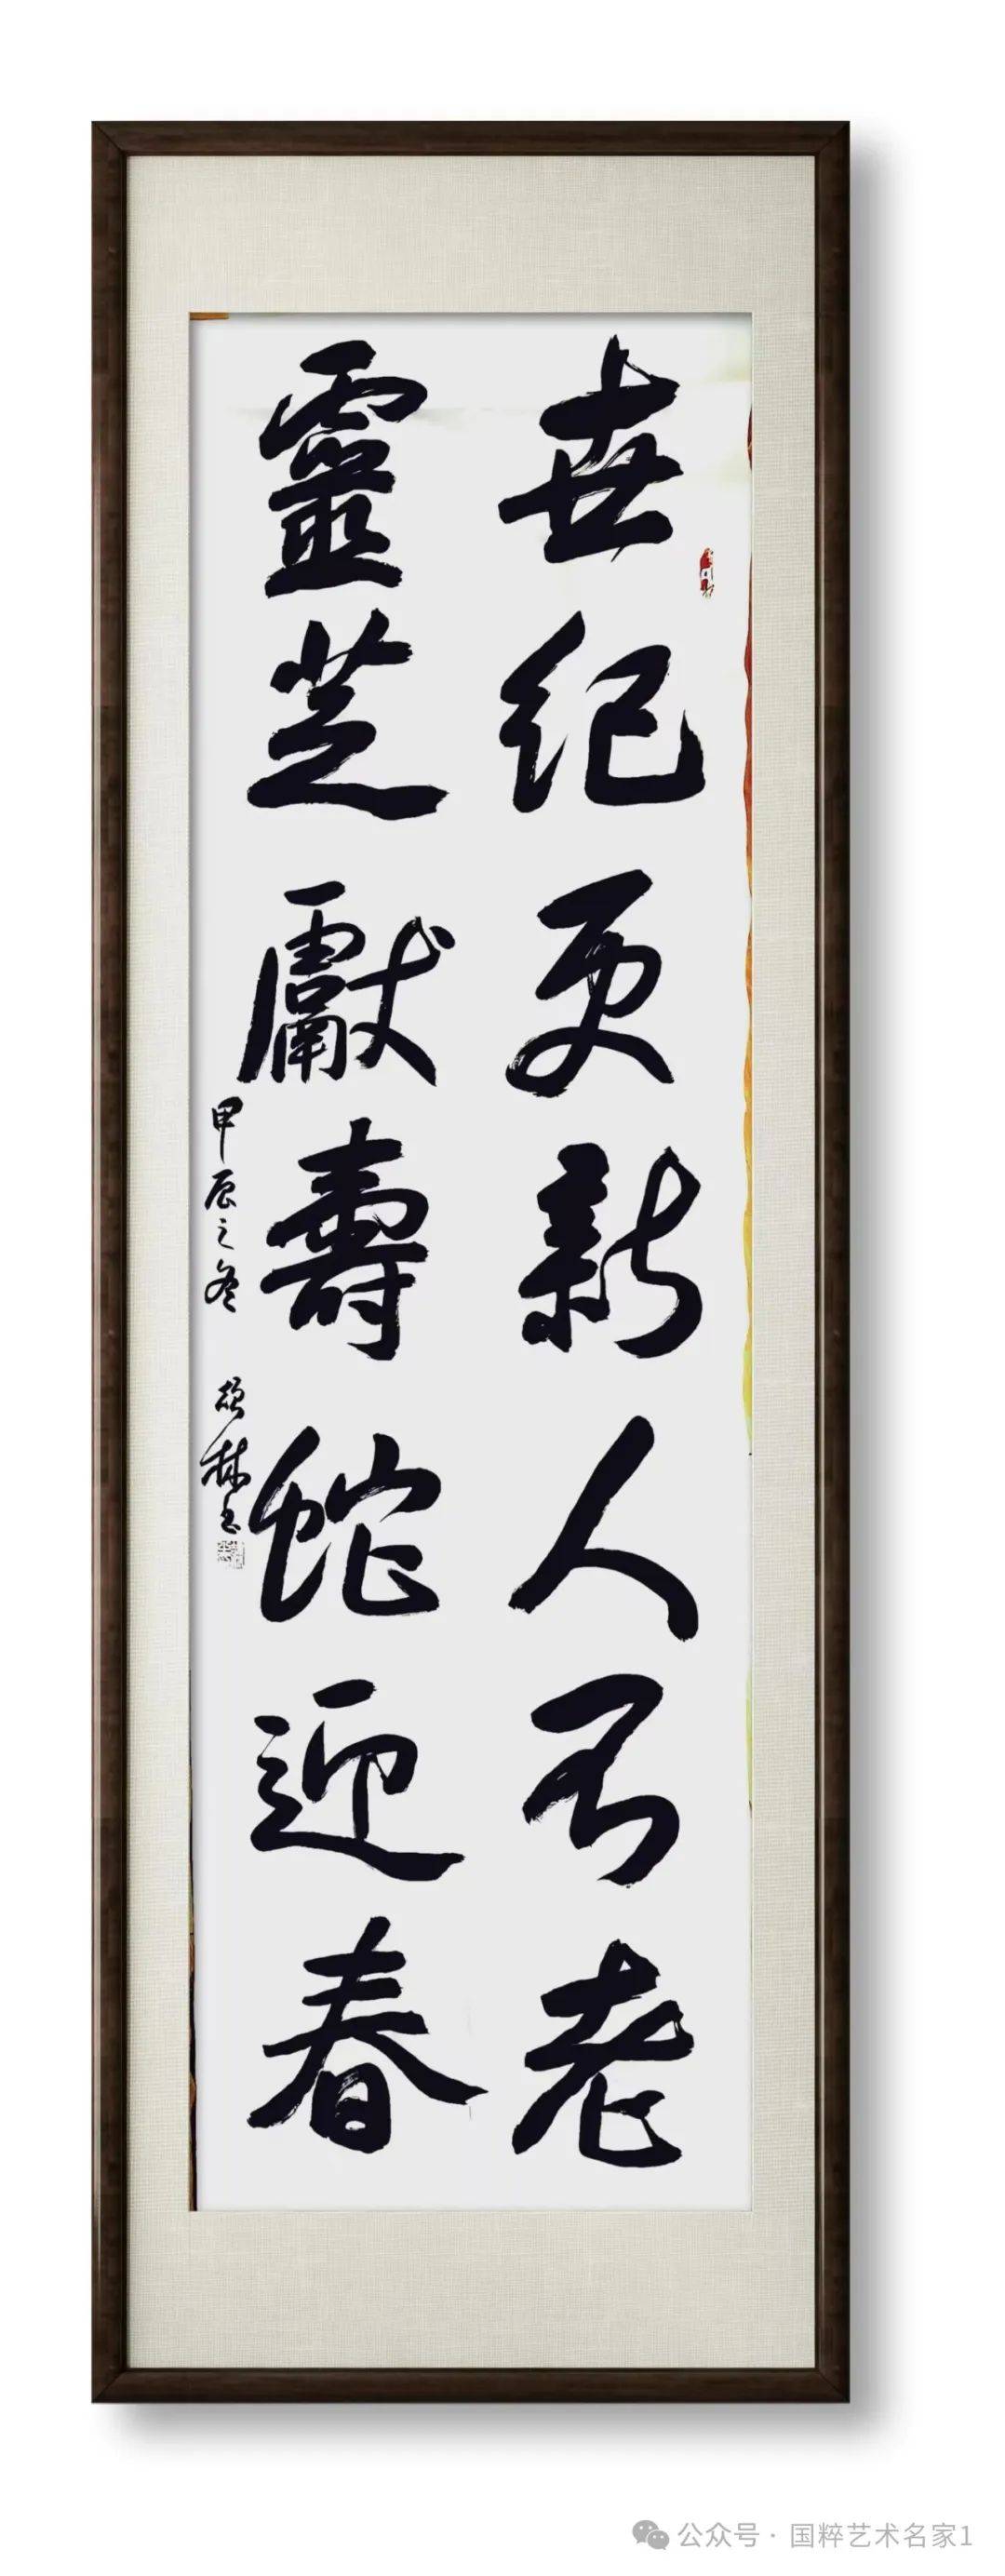 世纪更新人不老
靈芝獻壽蛇迎春
甲辰之冬
林书
公众号·国粹艺术名家1